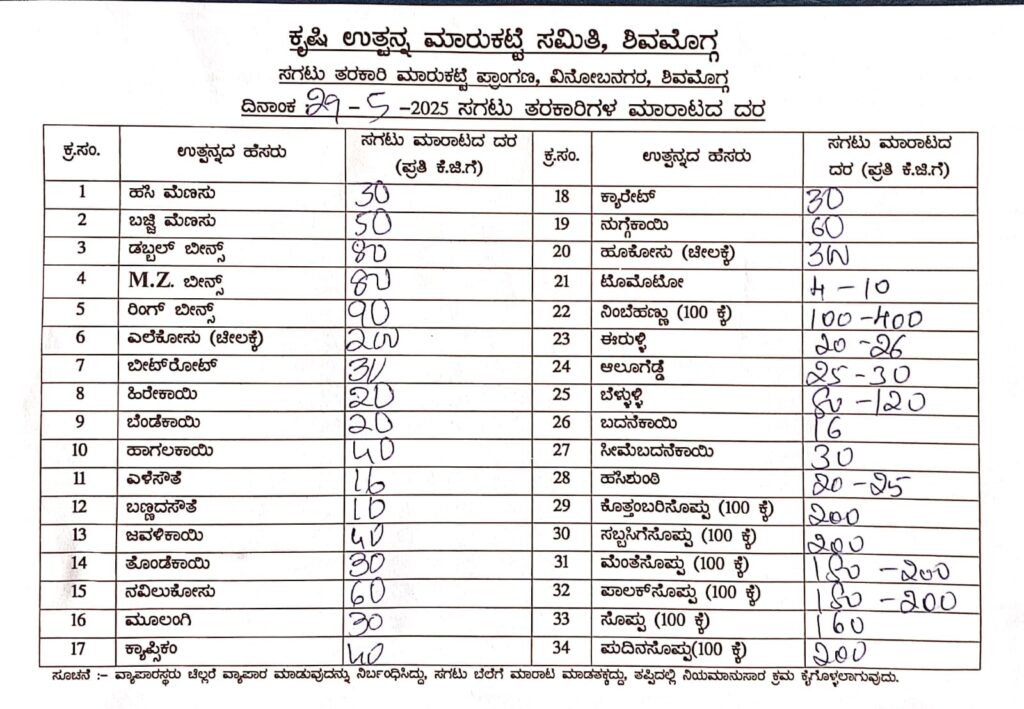 ಕೃಷಿ ಉತ್ಪನ್ನ ಮಾರುಕಟ್ಟೆ ಸಮಿತಿ, ಶಿವಮೊಗ್ಗ
ಸಗಟು ತರಕಾರಿ ಮಾರುಕಟ್ಟೆ ಪ್ರಾಂಗಣ, ವಿನೋಬನಗರ, ಶಿವಮೊಗ್ಗ
ದಿನಾಂಕ :29 – 5 –2025 ಸಗಟು ತರಕಾರಿಗಳ ಮಾರಾಟದ ದರ
ಕ್ರ.ಸಂ. ಉತ್ಪನ್ನದ ಹೆಸರು ಸಗಟು ಮಾರಾಟದ ದರ (ಪ್ರತಿ ಕೆ.ಜಿ.ಗೆ) ಕ್ರ.ಸಂ. ಉತ್ಪನ್ನದ ಹೆಸರು ಸಗಟು ಮಾರಾಟದ ದರ (ಪ್ರತಿ ಕೆ.ಜಿ.ಗೆ)
1 ಹಸಿ ಮೆಣಸು 30 18 ಕ್ಯಾರೇಟ್ 30
2 ಬಜ್ಜಿ ಮೆಣಸು 50 19 ನುಗ್ಗೆಕಾಯಿ 60
3 ಡಬ್ಬಲ್ ಬೀನ್ಸ್ 80 20 ಹೂಕೋಸು (ಚೀಲಕ್ಕೆ) 300
4 M.Z. ಬೀನ್ಸ್ 80 21 ಟೊಮೊಟೋ 4 – 10
5 ರಿಂಗ್ ಬೀನ್ಸ್ 90 22 ನಿಂಬೆಹಣ್ಣು (100 ಕ್ಕೆ) 100 –400
6 ಎಲೆಕೋಸು (ಚೀಲಕ್ಕೆ) 200 23 ಈರುಳ್ಳಿ 20 –26
7 ಬೀಟ್‌ರೋಟ್ 30 24 ಆಲೂಗೆಡ್ಡೆ 25 –30
8 ಹಿರೇಕಾಯಿ 20 25 ಬೆಳ್ಳುಳ್ಳಿ 80 –120
9 ಬೆಂಡೆಕಾಯಿ 20 26 ಬದನೆಕಾಯಿ 16
10 ಹಾಗಲಕಾಯಿ 40 27 ಸೀಮೆಬದನೆಕಾಯಿ 30
11 ಎಳೆಸೌತೆ 16 28 ಹಸಿಶುಂಠಿ 20 –25
12 ಬಣ್ಣದಸೌತೆ 10 29 ಕೊತ್ತಂಬರಿಸೊಪ್ಪು (100 ಕ್ಕೆ) 200
13 ಜವಳಿಕಾಯಿ 40 30 ಸಬ್ಬಸಿಗೆಸೊಪ್ಪು (100 ಕ್ಕೆ) 200
14 ತೊಂಡೆಕಾಯಿ 30 31 ಮೆಂತೆಸೊಪ್ಪು (100 ಕ್ಕೆ) 180 –200
15 ನವಿಲುಕೋಸು 60 32 ಪಾಲಕ್‌ಸೊಪ್ಪು (100 ಕ್ಕೆ) 180 –200
16 ಮೂಲಂಗಿ 30 33 ಸೊಪ್ಪು (100 ಕ್ಕೆ) 160
17 ಕ್ಯಾಪ್ಸಿಕಂ 40 34 ಪುದಿನಸೊಪ್ಪು(100 ಕ್ಕೆ) 200
ಸೂಚನೆ :– ವ್ಯಾಪಾರಸ್ಥರು ಚಿಲ್ಲರೆ ವ್ಯಾಪಾರ ಮಾಡುವುದನ್ನು ನಿರ್ಬಂಧಿಸಿದ್ದು, ಸಗಟು ಬೆಲೆಗೆ ಮಾರಾಟ ಮಾಡತಕ್ಕದ್ದು, ತಪ್ಪಿದಲ್ಲಿ ನಿಯಮಾನುಸಾರ ಕ್ರಮ ಕೈಗೊಳ್ಳಲಾಗುವುದು.